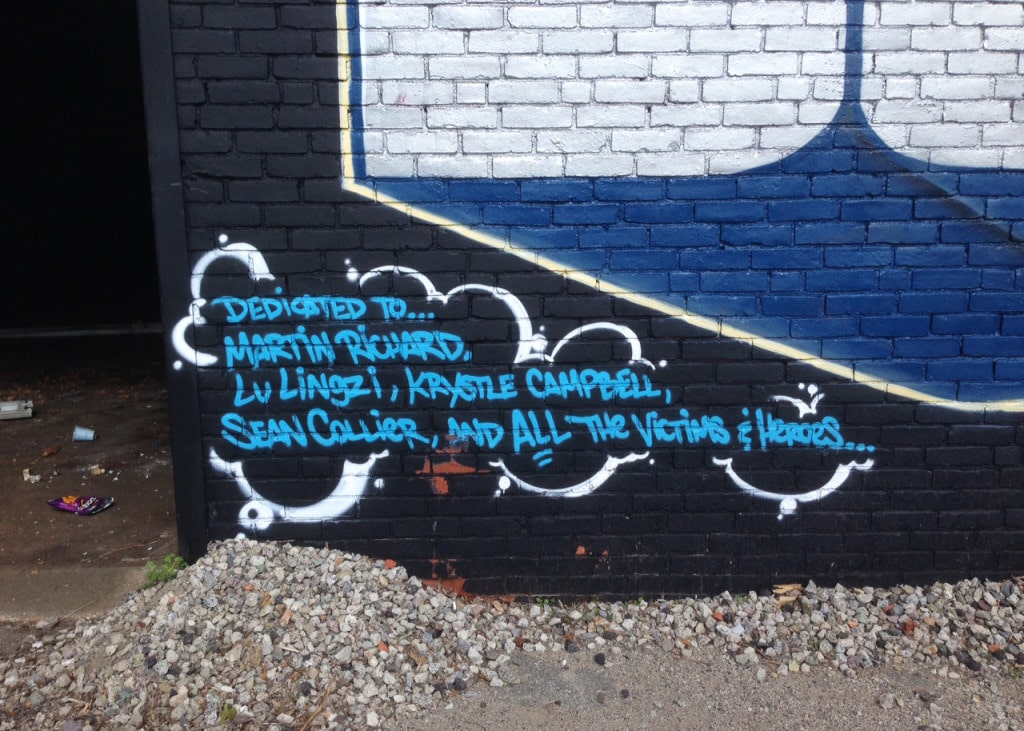 DEDICATED TO...
MARTIN RICHARD,
LU LINGZI, KRYSTLE CAMPBELL,
SEAN COLLIER, AND ALL THE VICTIMS & HEROES...